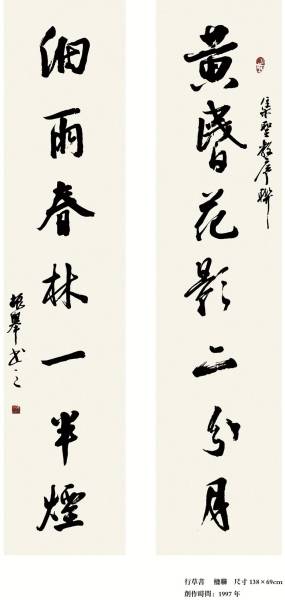 黃昏花影二分月
集聖教序聯
細雨春林一半煙
振舉书之
行草書 楹聯 尺寸 138×69cm
創作時間：1997 年